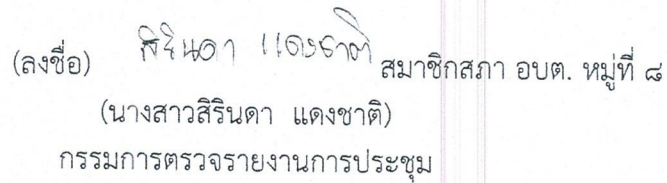 (ลงชื่อ) สิรินดา แดงชาติ สมาชิกสภา อบต. หมู่ที่ ๘
(นางสาวสิรินดา แดงชาติ)
กรรมการตรวจรายงานการประชุม